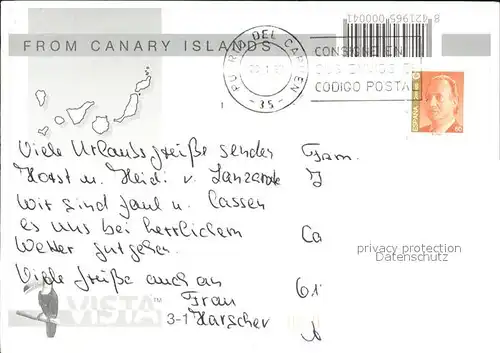 FROM CANARY ISLANDS
8 421965 000041
PU RTO DEL CARMEN
-35-
CONSIGNE EN
SUS ENVIOS EL
CODIGO POSTAL
ESPAÑA
60
Viele Urlaubsgrüße senden
Horst u. Heidi v. Lanzarote
Wir sind faul u. lassen
es uns bei herrlichem
Wetter gutgehen.
Viele Grüße auch an
Frau
Harscher
Fam.
Ca
61
privacy protection
Datenschutz
VISTA™
3-1